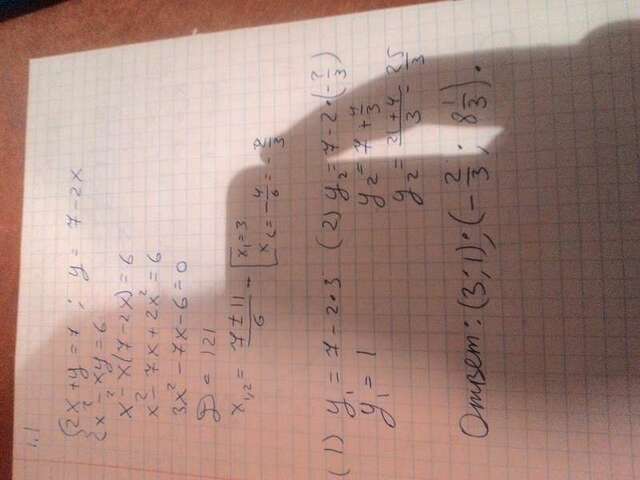 1.1
{2x + y = 7 ; y = 7 - 2x
{x² - xy = 6
x² - x(7 - 2x) = 6
x² - 7x + 2x² = 6
3x² - 7x - 6 = 0
D = 121
x₁,₂ = (7 ± 11)/6 - [x₁ = 3
x₂ = -4/6 = -2/3
(1) y₁ = 7 - 2·3 (2) y₂ = 7 - 2·(-2/3)
y₁ = 1 y₂ = 7 + 4/3
y₂ = (21 + 4)/3 = 25/3
Ответ: (3; 1); (-2/3 ; 8 1/3).